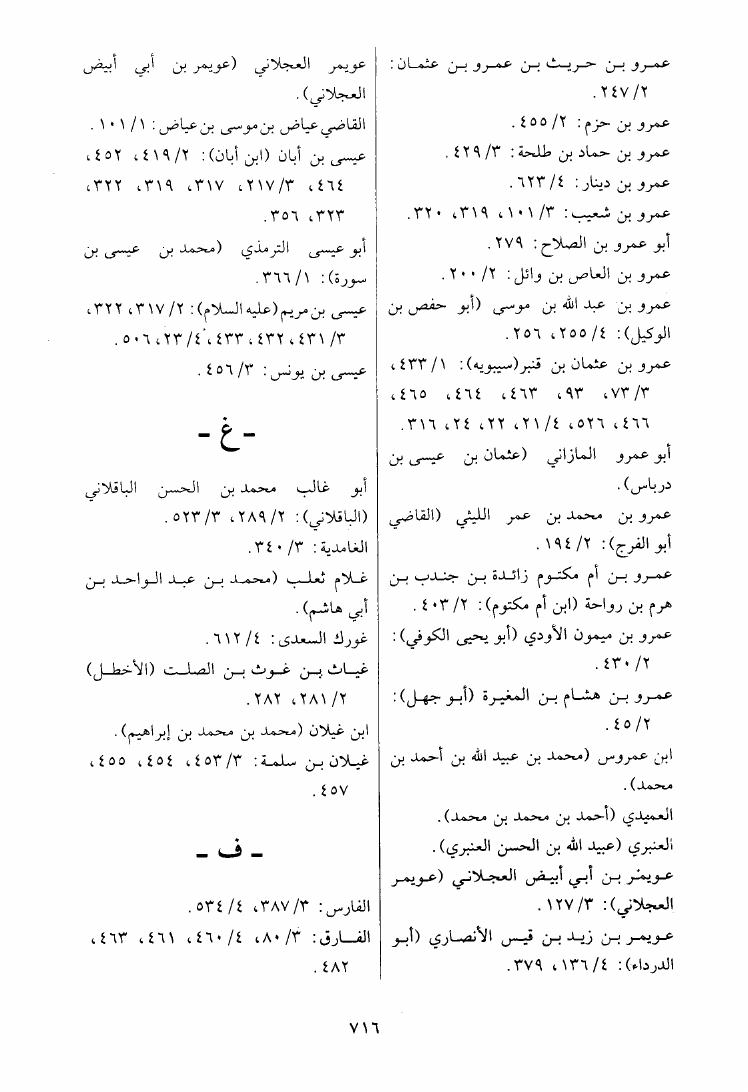 عمرو بن حريث بن عمرو بن عثمان:
٢/ ٢٤٧.
عمرو بن حزم: ٢/ ٤٥٥.
عمرو بن حماد بن طلحة: ٣/ ٤٢٩.
عمرو بن دينار: ٤/ ٦٢٣.
عمرو بن شعيب: ٣/ ١٠١، ٣١٩، ٣٢٠.
أبو عمرو بن الصلاح: ٢٧٩.
عمرو بن العاص بن وائل: ٢/ ٢٠٠.
عمرو بن عبد الله بن موسى (أبو حفص بن
الوكيل): ٤/ ٢٥٥، ٢٥٦.
عمرو بن عثمان بن قنبر(سيبويه): ١/ ٤٣٣،
٣/ ٧٣، ٩٣، ٤٦٣، ٤٦٤، ٤٦٥،
٤٦٦، ٥٢٦، ٤/ ٢١، ٢٢، ٢٤، ٣١٦.
أبو عمرو المازاني (عثمان بن عيسى بن
درباس).
عمرو بن محمد بن عمر الليثي (القاضي
أبو الفرج): ٢/ ١٩٤.
عمرو بن أم مكتوم زائدة بن جندب بن
هرم بن رواحة (ابن أم مكتوم): ٢/ ٤٠٣.
عمرو بن ميمون الأودي (أبو يحيى الكوفي):
٢/ ٤٣٠.
عمرو بن هشام بن المغيرة (أبو جهل):
٢/ ٤٥.
ابن عمروس (محمد بن عبيد الله بن أحمد بن
محمد).
العميدي (أحمد بن محمد بن محمد).
العنبري (عبيد الله بن الحسن العنبري).
عويمر بن أبي أبيض العجلاني (عويمر
العجلاني): ٣/ ١٢٧.
عويمر بن زيد بن قيس الأنصاري (أبو
الدرداء): ٤/ ١٣٦، ٣٧٩.
عويمر العجلاني (عويمر بن أبي أبيض
العجلاني).
القاضي عياض بن موسى بن عياض: ١/ ١٠١.
عيسى بن أبان (ابن أبان): ٢/ ٤١٩، ٤٥٢،
٤٦٤، ٣/ ٢١٧، ٣١٧، ٣١٩، ٣٢٢،
٣٢٣، ٣٥٦.
أبو عيسى الترمذي (محمد بن عيسى بن
سورة): ١/ ٣٦٦.
عيسى بن مريم (عليه السلام): ٢/ ٣١٧، ٣٢٢،
٣/ ٤٣١، ٤٣٢، ٤٣٣، ٤/ ٢٣، ٥٠٦.
عيسى بن يونس: ٣/ ٤٥٦.
- غ -
أبو غالب محمد بن الحسن الباقلاني
(الباقلاني): ٢/ ٢٨٩، ٣/ ٥٢٣.
الغامدية: ٣/ ٣٤٠.
غلام ثعلب (محمد بن عبد الواحد بن
أبي هاشم).
غورك السعدى: ٤/ ٦١٢.
غياث بن غوث بن الصلت (الأخطل)
٢/ ٢٨١، ٢٨٢.
ابن غيلان (محمد بن محمد بن إبراهيم).
غيلان بن سلمة: ٣/ ٤٥٣، ٤٥٤، ٤٥٥،
٤٥٧.
- ف -
الفارس: ٣/ ٣٨٧، ٤/ ٥٣٤.
الفارق: ٣/ ٨٠، ٤/ ٤٦٠، ٤٦١، ٤٦٣،
٤٨٢.
٧١٦